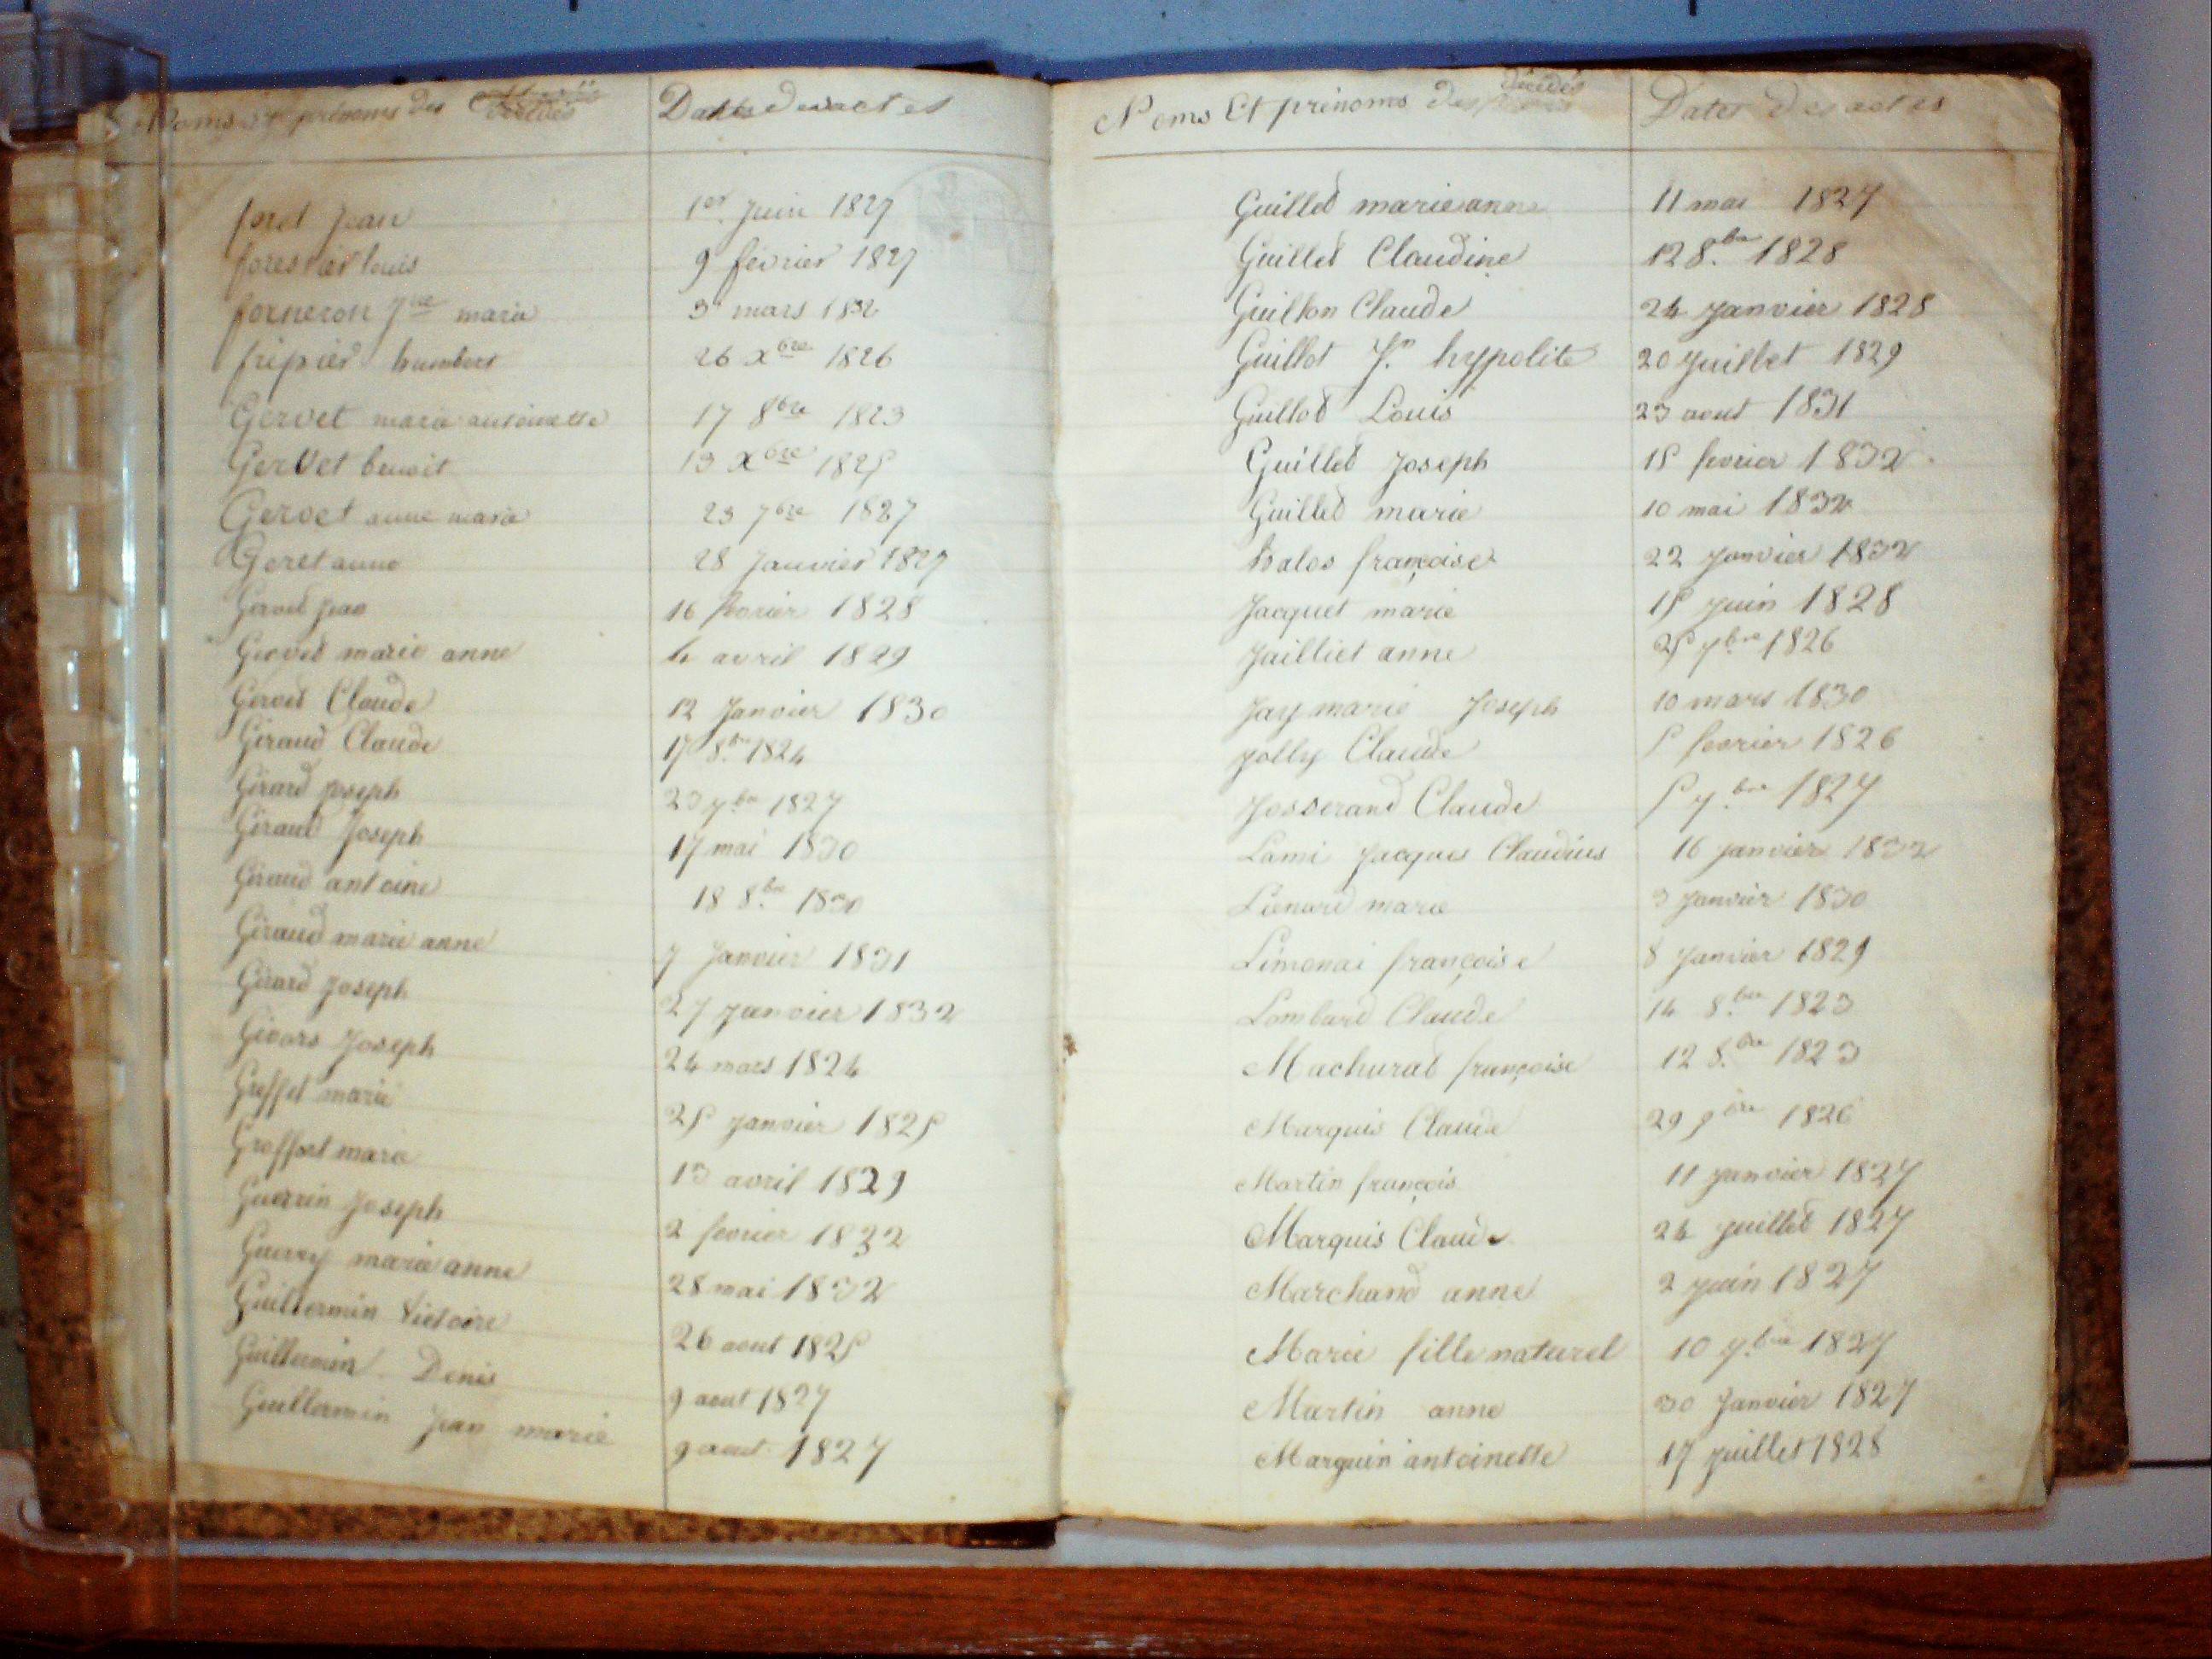 Noms et prénoms des décédés Dates des actes
foret Jean 1er Juin 1827
forestier louis 9 février 1827
forneron marie 3 mars 1832
fripier humbert 26 Xbre 1826
Gervet marie antoinette 17 8bre 1823
Gervet benoit 13 Xbre 1825
Gervet anne marie 23 7bre 1827
Geret anne 28 Janvier 1827
Gervet Jean 16 fevrier 1828
Gervet marie anne 4 avril 1829
Gervet Claude 12 Janvier 1830
Giraud Claude 17 8bre 1824
Girard Joseph 23 7bre 1827
Giraud Joseph 17 mai 1830
Giraud antoine 18 8bre 1830
Giraud marie anne 7 Janvier 1831
Girard Joseph 27 Janvier 1832
Givors Joseph 24 mars 1824
Greffet marie 25 Janvier 1825
Greffet marie 13 avril 1829
Guerrin Joseph 2 fevrier 1832
Guerry marie anne 28 mai 1832
Guillermin Victoire 26 aout 1825
Guillermin Denis 9 aout 1827
Guillermin Jean marie 9 aout 1827
Noms Et prénoms des décédés Dates des actes
Guillet marie anne 11 mai 1827
Guillet Claudine 12 8.bre 1828
Guillon Claude 24 Janvier 1828
Guillot Jn hypolite 20 Juillet 1829
Guillot Louis 23 aout 1831
Guillet Joseph 15 fevrier 1832
Guillet marie 10 mai 1832
halos françoise 22 Janvier 1832
Jacquet marie 15 Juin 1828
Jailliet anne 25 7bre 1826
Jay marie Joseph 10 mars 1830
Jolly Claude 5 fevrier 1826
Josserand Claude 5 7.bre 1827
Lami Jacques Claudius 16 Janvier 1832
Lienard marie 3 Janvier 1830
Limonai françoise 8 Janvier 1829
Lombard Claude 14 8.bre 1823
Machurat françoise 12 8.bre 1823
Marquis Claude 29 9bre 1826
Martin françois 11 Janvier 1827
Marquis Claude 24 Juillet 1827
Marchand anne 2 Juin 1827
Marie fille naturel 10 7.bre 1827
Martin anne 30 Janvier 1827
Marguin antoinette 17 Juillet 1828